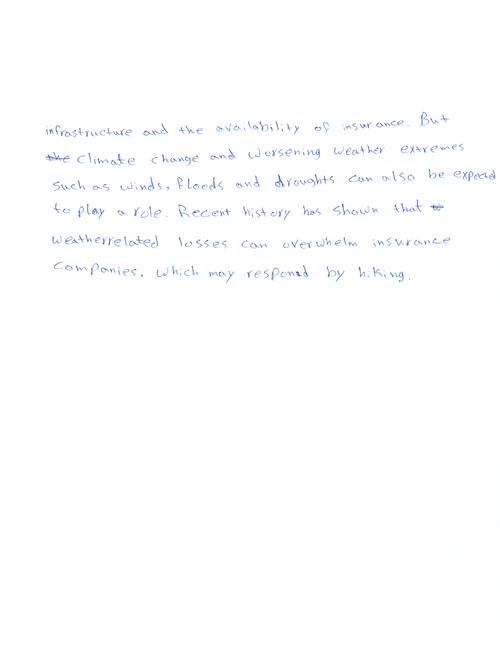 infrastructure and the availability of insurance. But
the Climate change and worsening weather extremes
such as winds, floods and droughts can also be expected
to play a role. Recent history has shown that w
weatherrelated losses can overwhelm insurance
Companies. which may respond by hiking.